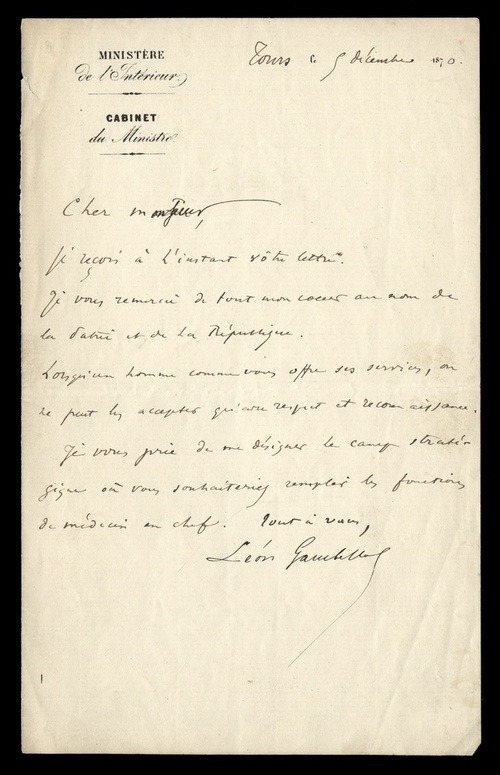 MINISTÈRE
de l'Intérieur
CABINET
du Ministre
Tours le 5 décembre 1870.
Cher monsieur,
Je reçois à l'instant vôtre lettre.
Je vous remercie de tout mon coeur au nom de
la Patrie et de la République.
Lorsqu'un homme comme vous offre ses services, on
ne peut les accepter qu'avec respect et reconnaissance.
Je vous prie de me désigner le camp straté-
gique où vous souhaiteriez remplir les fonctions
de médecin en chef. Tout à vous,
Léon Gambetta